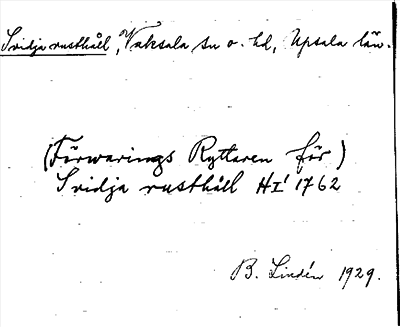 Svidja rusthåll, Vaksala sn o. hd, Upsala län.
(Förwarings Ryttaren för)
Svidja rusthåll HI! 1762
B. Lindén 1929.